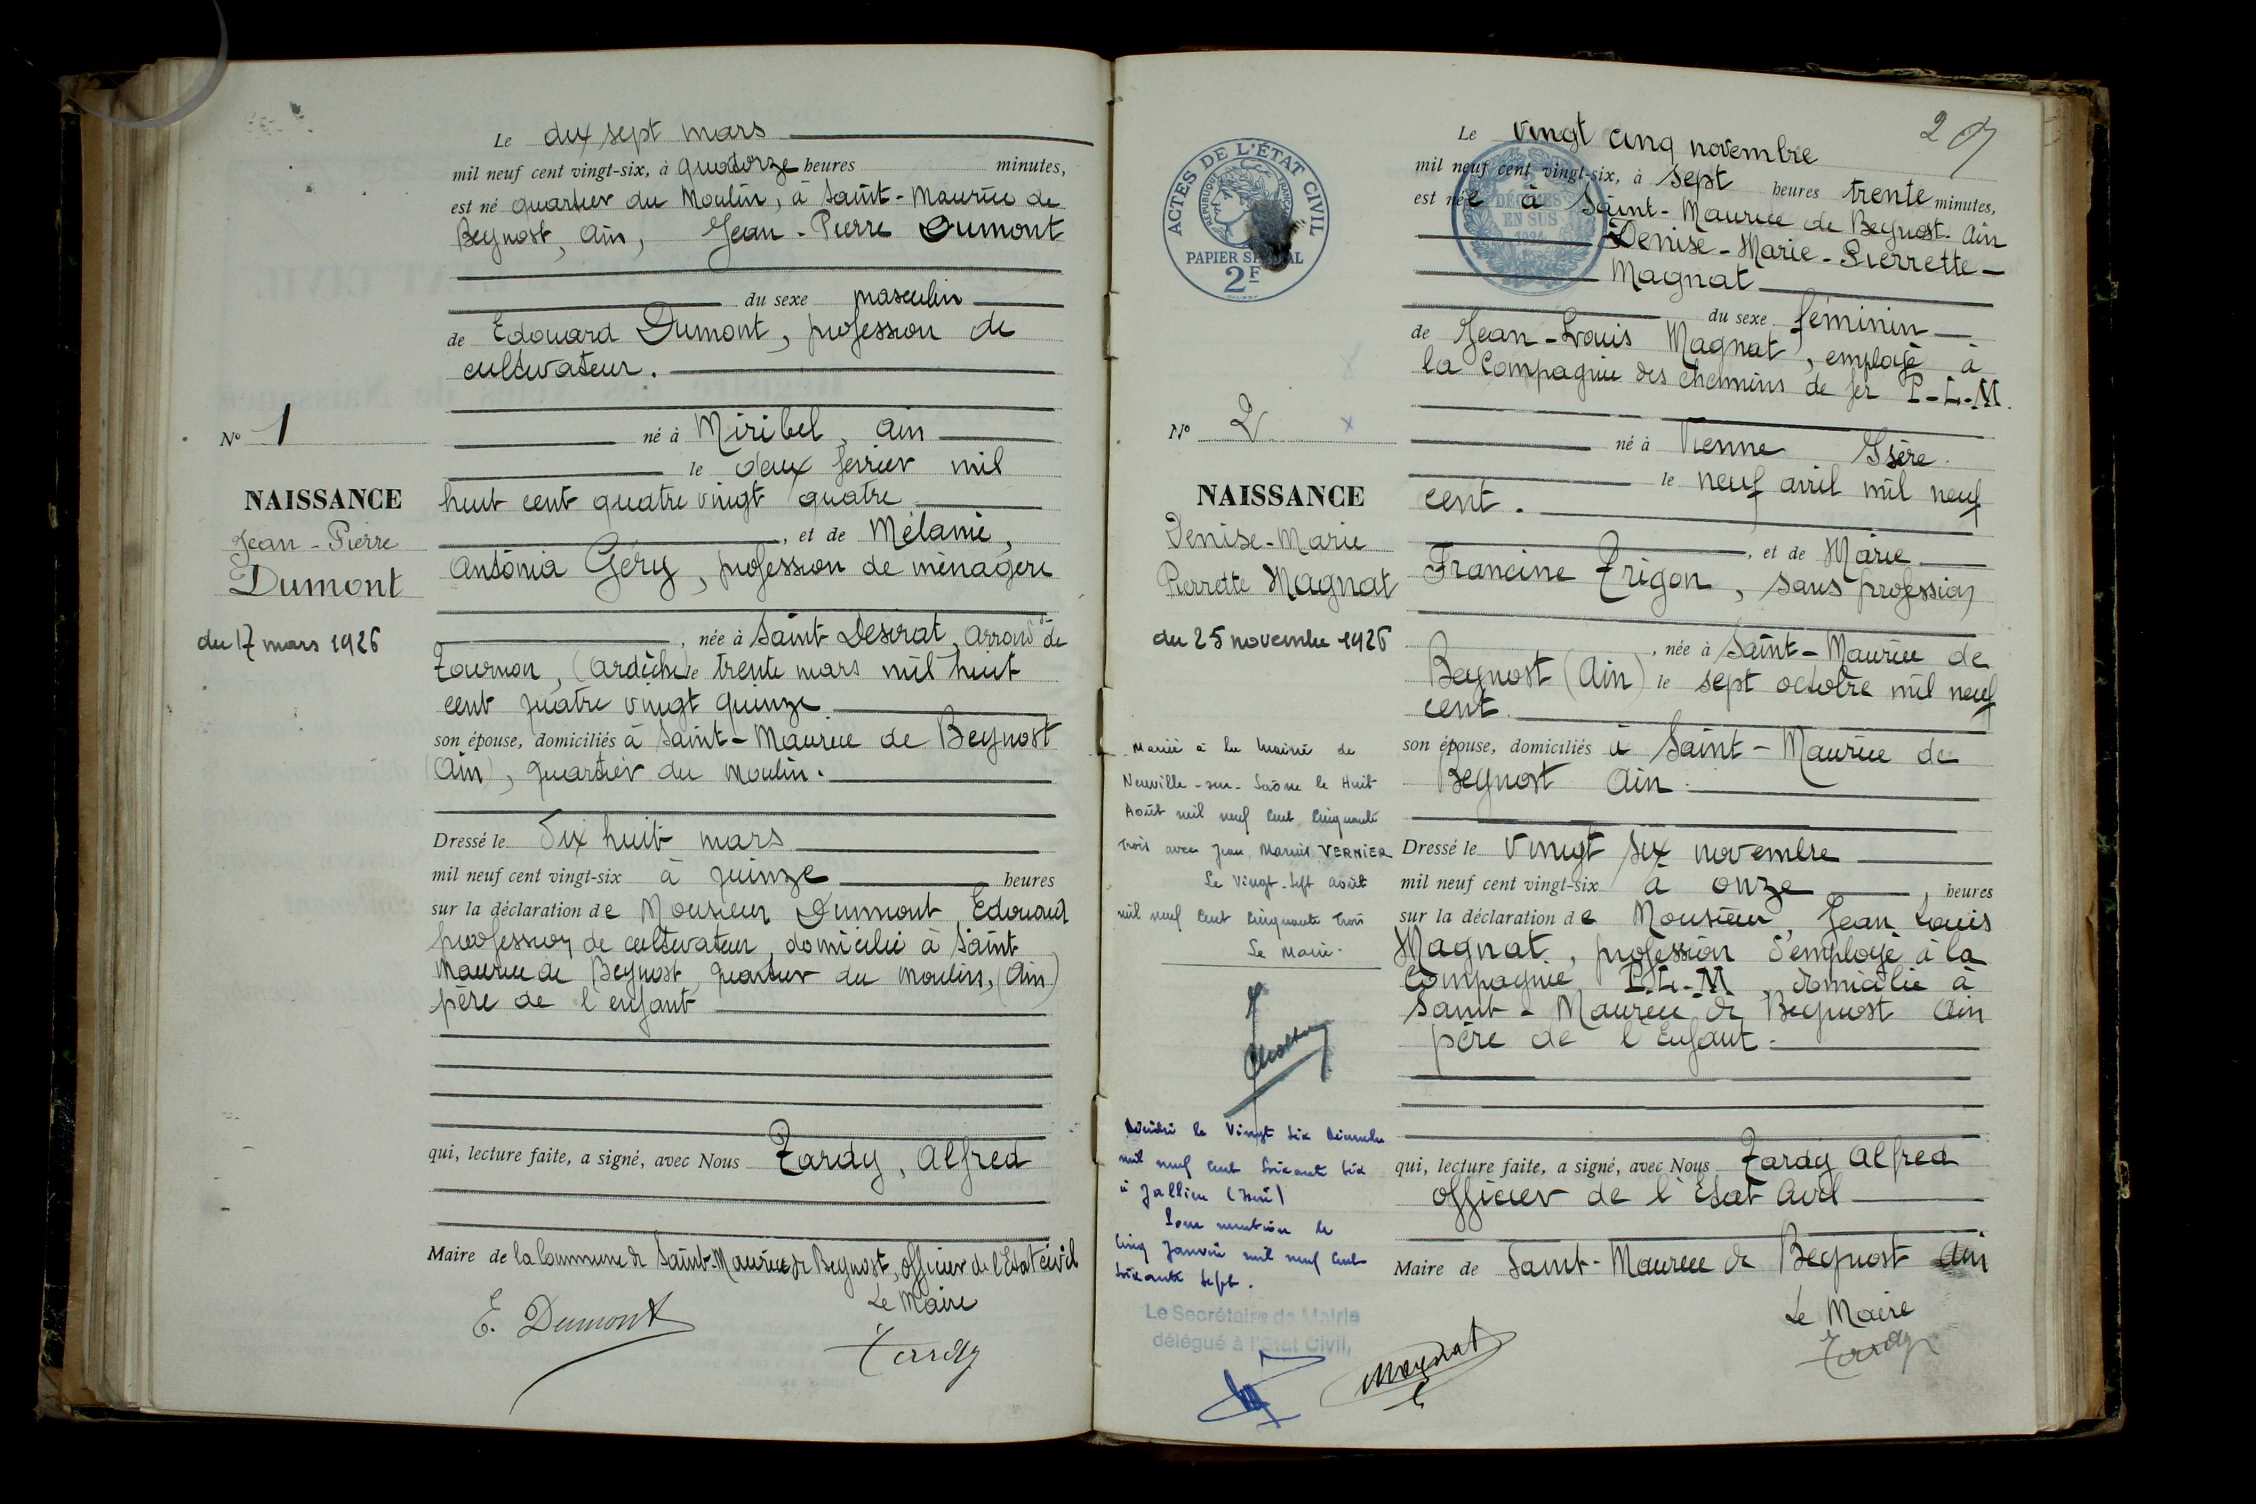 Le dix sept mars
mil neuf cent vingt-six, à quatorze heures minutes,
est né quartier du Moulin, à Saint-Maurice de
Beynost, Ain, Jean-Pierre Dumont
du sexe masculin
de Edouard Dumont, profession de
cultivateur.
né à Miribel, Ain
le deux fevrier mil
huit cent quatre vingt quatre
, et de Mélanie,
Antonia Géry, profession de ménagère
, née à Saint Désirat, Arrond de
Tournon, (Ardèche) le trente mars mil huit
cent quatre vingt quinze
son épouse, domiciliés à Saint-Maurice de Beynost
(Ain), quartier du Moulin.
Dressé le Dix huit mars
mil neuf cent vingt-six à quinze heures
sur la déclaration de Monsieur Dumont Edouard
profession de cultivateur, domicilié à Saint
Maurice de Beynost, quartier du Moulin, (Ain)
père de l'enfant
qui, lecture faite, a signé, avec Nous Tardy, Alfred
Maire de la Commune de Saint-Maurice de Beynost, officier de l'Etat civil
Le Maire
E. Dumont
Tardy
N° 1
NAISSANCE
Jean-Pierre
Dumont
du 17 mars 1926
2
Le vingt cinq novembre
mil neuf cent vingt-six, à sept heures trente minutes,
est née à Saint-Maurice de Beynost-Ain
Denise-Marie-Pierrette-
Magnat
du sexe féminin
de Jean-Louis Magnat, employé à
la Compagnie des chemins de fer P-L-M.
né à Vienne Isère.
le neuf avril mil neuf
cent.
, et de Marie
Francine Trigon, sans profession
, née à Saint-Maurice de
Beynost (Ain) le sept octobre mil neuf
cent.
son épouse, domiciliés à Saint-Maurice de
Beynost Ain.
Dressé le vingt six novembre
mil neuf cent vingt-six à onze, heures
sur la déclaration de Monsieur, Jean Louis
Magnat, profession d'employé à la
Compagnie P.L-M, domicilié à
Saint-Maurice de Beynost Ain
père de l'Enfant.
qui, lecture faite, a signé, avec Nous Tardy Alfred
officier de l'Etat Civil
Maire de Saint-Maurice de Beynost Ain
Le Maire
Tardy
Magnat
ACTES DE L'ÉTAT CIVIL
RÉPUBLIQUE FRANÇAISE
PAPIER SPÉCIAL
2F
2 DÉCIMES
EN SUS
N° 2
NAISSANCE
Denise-Marie
Pierrette Magnat
du 25 novembre 1926
Mariée à la Mairie de
Neuville-sur-Saône le Huit
Août mil neuf cent cinquante
trois avec Jean, Marius VERNIER
Le Vingt-Sept Août
mil neuf cent cinquante trois
Le Maire.
Décédée le Vingt Six Décembre
mil neuf cent soixante six
à Jallieu (Isère)
Pour mention le
cinq Janvier mil neuf cent
soixante sept.
Le Secrétaire de Mairie
délégué à l'Etat Civil,